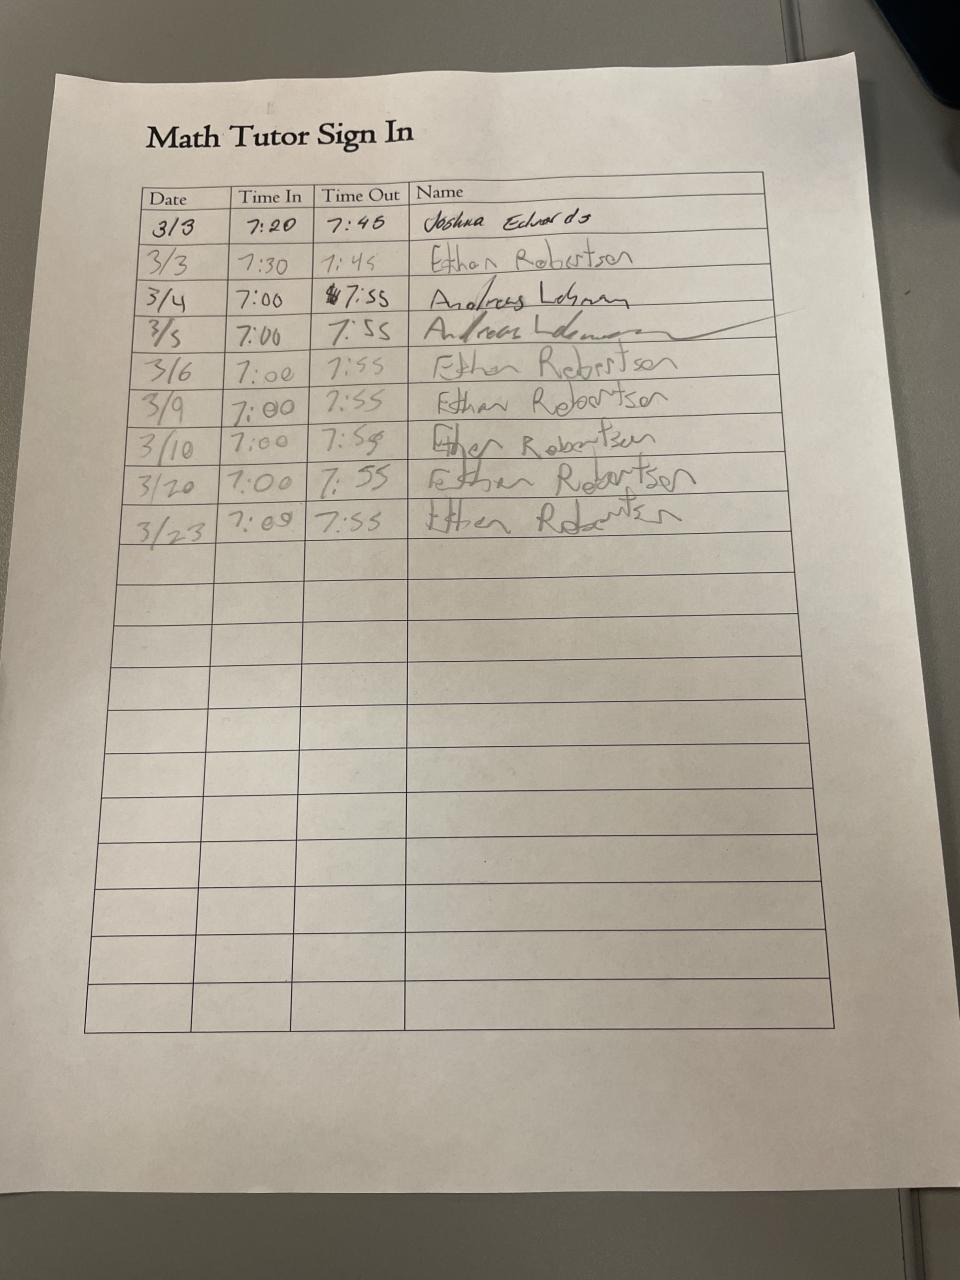 Math Tutor Sign In
Date Time In Time Out Name
3/3 7:20 7:45 Joshua Edwards
3/3 7:30 7:45 Ethan Robertson
3/4 7:00 7:55 Andreas Lehman
3/5 7:00 7:55 Andreas
3/6 7:00 7:55 Ethan Robertson
3/9 7:00 7:55 Ethan Robertson
3/10 7:00 7:55 Ethan Robertson
3/20 7:00 7:55 Ethan Robertson
3/23 7:00 7:55 Ethan Robertson